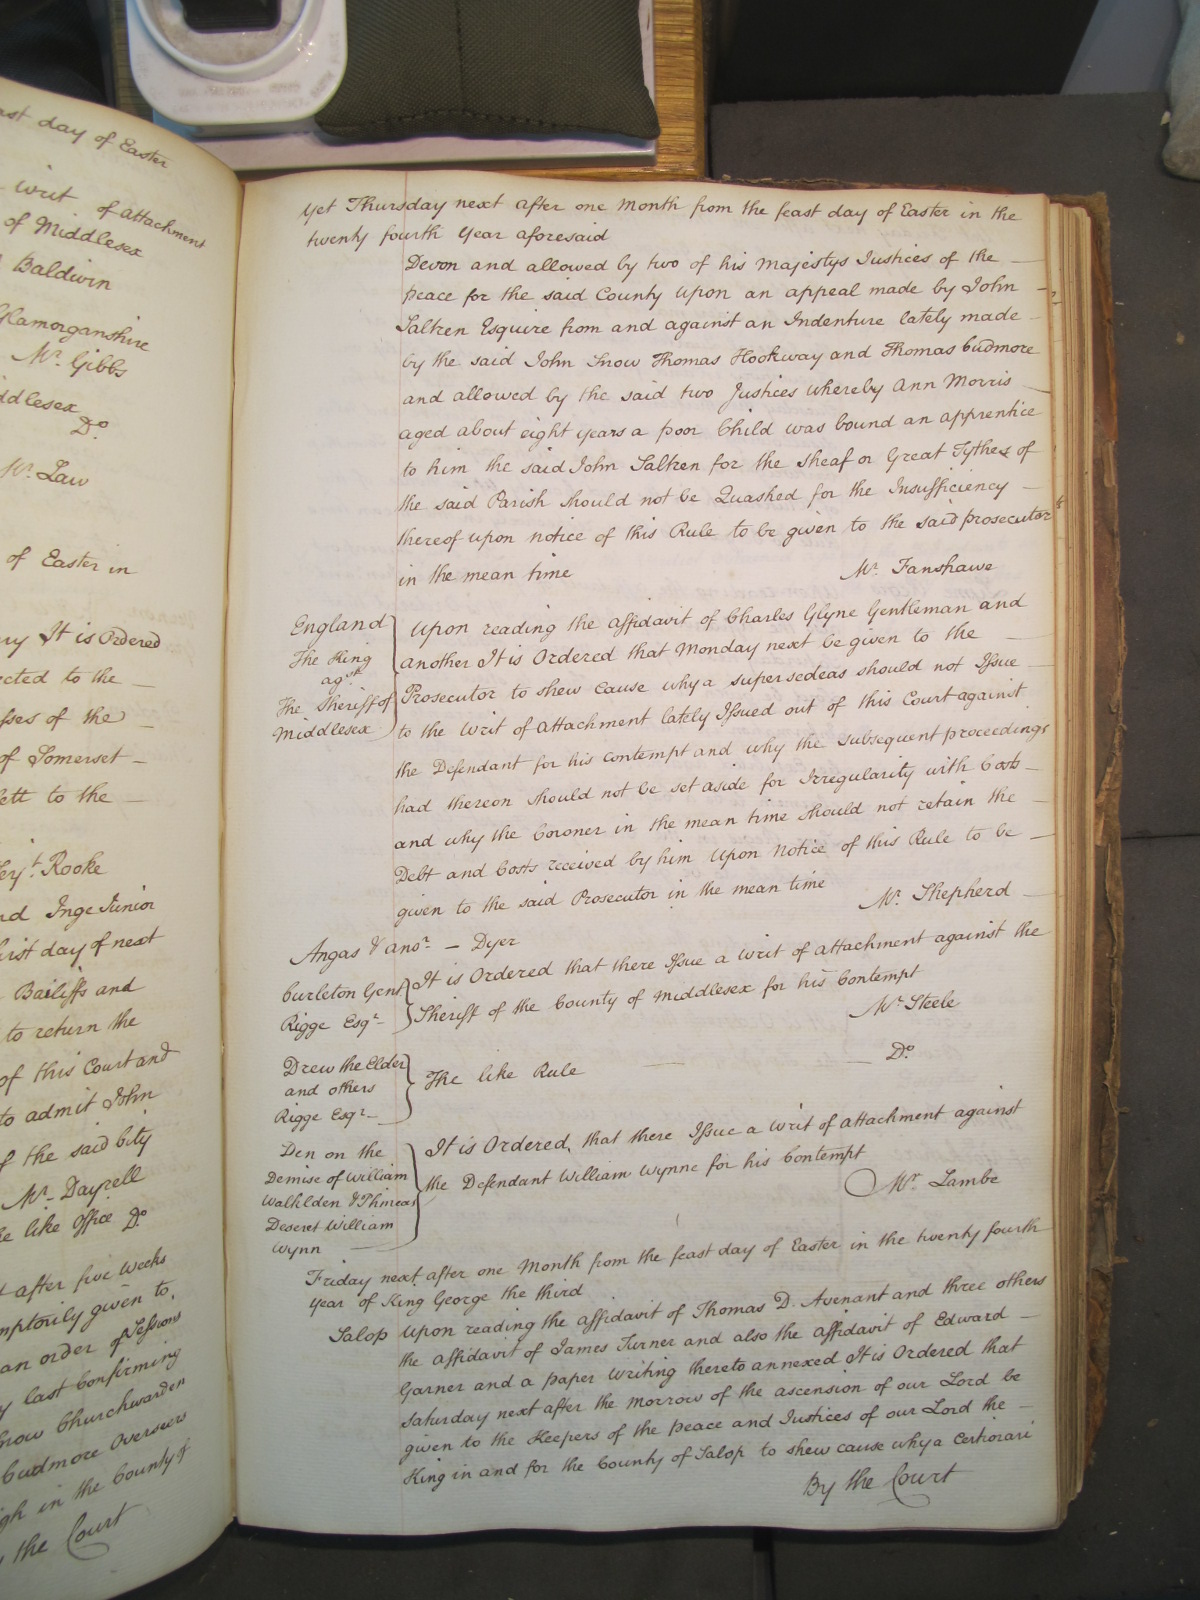 ast day of Easter
writ of attachment
of Middlesex
Baldwin
Glamorganshire
Mr. Gibbs
ddlesex
Do.
Mr. Law
of Easter in
ry It is Ordered
ected to the
sses of the
of Somerset
lett to the
Serjt. Rooke
nd Inge Junior
first day of next
Bailiffs and
to return the
of this Court and
to admit John
f the said City
Mr. Dayrell
he like Office Do.
t after five Weeks
mptorily given to
an order of Sessions
y last Confirming
Snow Churchwarden
Cudmore Overseers
igh in the County of
the Court
yet Thursday next after one Month from the feast day of Easter in the
twenty fourth Year aforesaid
Devon and allowed by two of his Majestys Justices of the
peace for the said County upon an appeal made by John
Saltren Esquire from and against an Indenture lately made
by the said John Snow Thomas Hookway and Thomas Cudmore
and allowed by the said two Justices whereby Ann Morris
aged about eight years a poor Child was bound an apprentice
to him the said John Saltren for the sheaf or Great Tythes of
the said Parish should not be Quashed for the Insufficiency
thereof upon notice of this Rule to be given to the said prosecutor
in the mean time Mr. Fanshawe
England
The King
agst.
The Sheriff of
Middlesex
Upon reading the affidavit of Charles Glyne Gentleman and
another It is Ordered that Monday next be given to the
Prosecutor to shew cause why a supersedeas should not Issue
to the Writ of Attachment lately Issued out of this Court against
the Defendant for his Contempt and why the subsequent proceedings
had thereon should not be set aside for Irregularity with Costs
and why the Coroner in the mean time should not retain the
Debt and Costs received by him Upon Notice of this Rule to be
given to the said Prosecutor in the mean time Mr. Shepherd
Angas & anor. – Dyer
Curleton Gent
Rigge Esqr.
It is Ordered that there Issue a Writ of attachment against the
Sheriff of the County of Middlesex for his Contempt
Mr. Steele
Drew the Elder
and others
Rigge Esqr.
The like Rule Do.
Den on the
Demise of William
Walhlden & Phineas
Deseret William
Wynn
It is Ordered, that there Issue a Writ of attachment against
the Defendant William Wynne for his Contempt
Mr. Lambe
Friday next after one Month from the feast day of Easter in the twenty fourth
year of King George the third
Salop Upon reading the affidavit of Thomas D. Avenant and three others
the affidavit of James Turner and also the affidavit of Edward
Garner and a paper Writing thereto annexed It is Ordered that
Saturday next after the Morrow of the ascension of our Lord be
given to the Keepers of the Peace and Justices of our Lord the
King in and for the County of Salop to shew cause why a Certiorari
By the Court